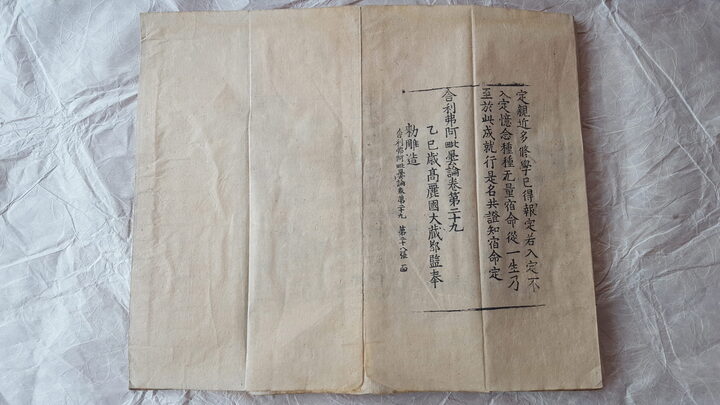 定親近多修學已得報定若入定不
入定憶念種種无量宿命從一生乃
至於此成就行是名共證知宿命定
舍利弗阿毗曇論卷第二十九
乙巳歲高麗國大藏都監奉
勑雕造
舍利弗阿毗曇論卷第二十九 第二十八張